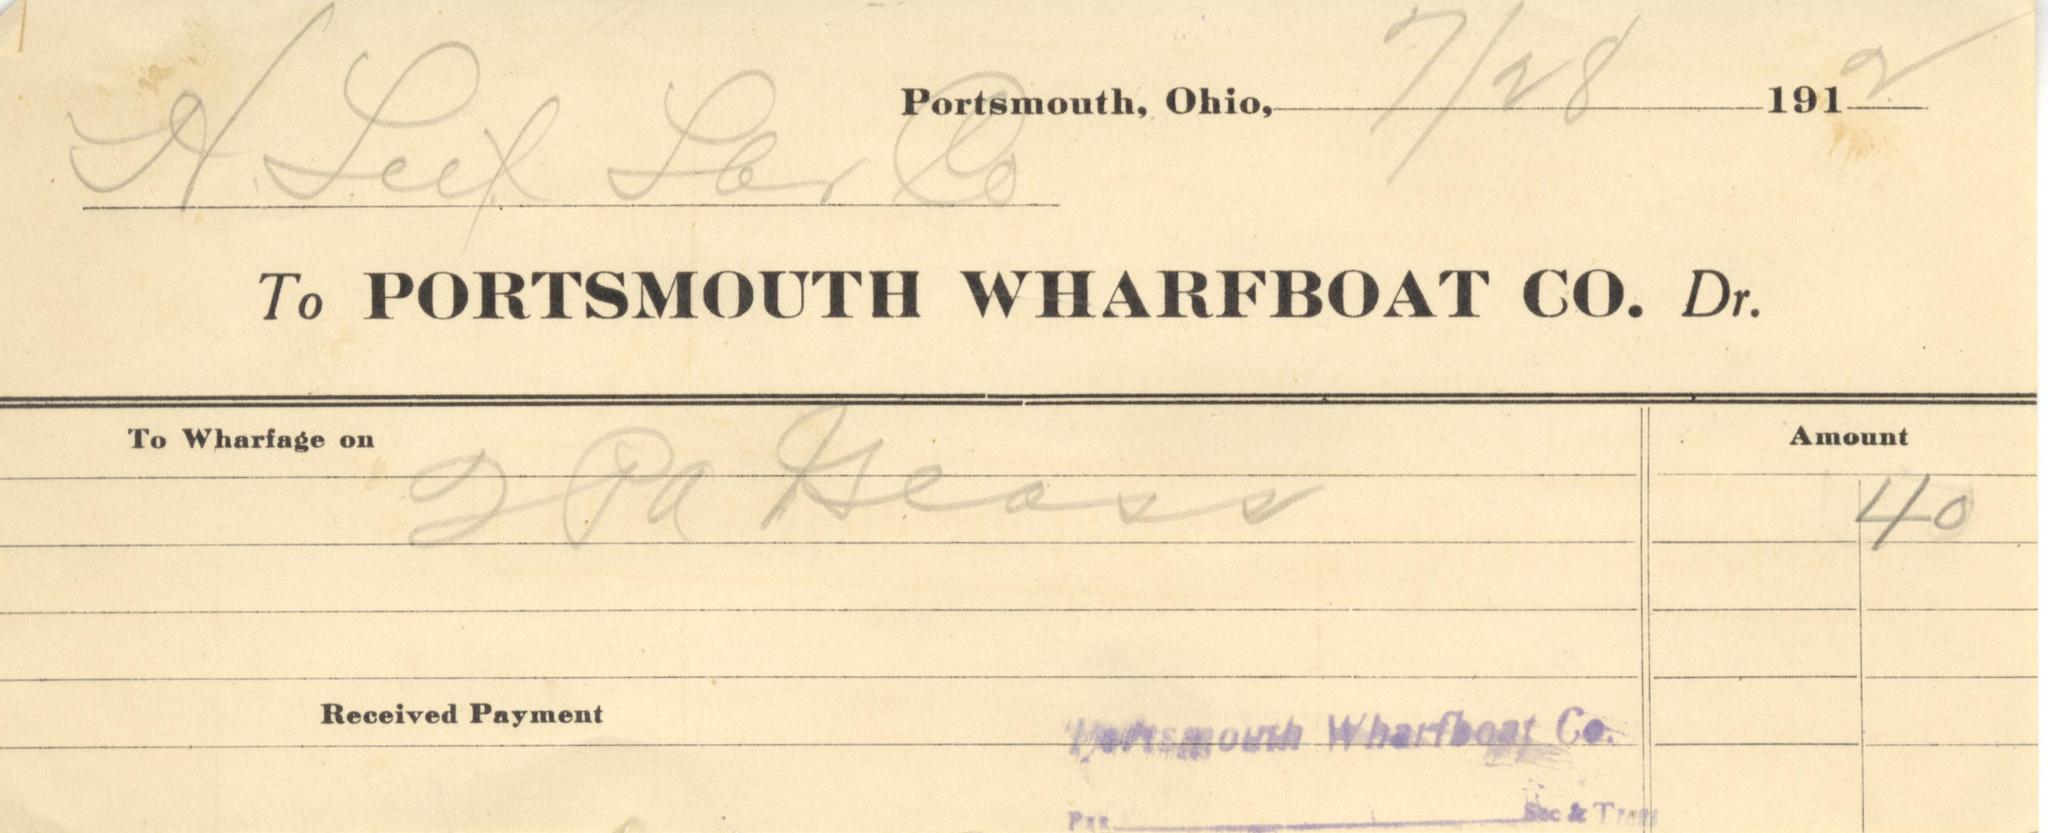 Portsmouth, Ohio, 7/28 1912
H Leet Lbr Co
To PORTSMOUTH WHARFBOAT CO. Dr.
To Wharfage on Amount
2 Glass 40
Received Payment
Portsmouth Wharfboat Co.
Per Sec & Treas